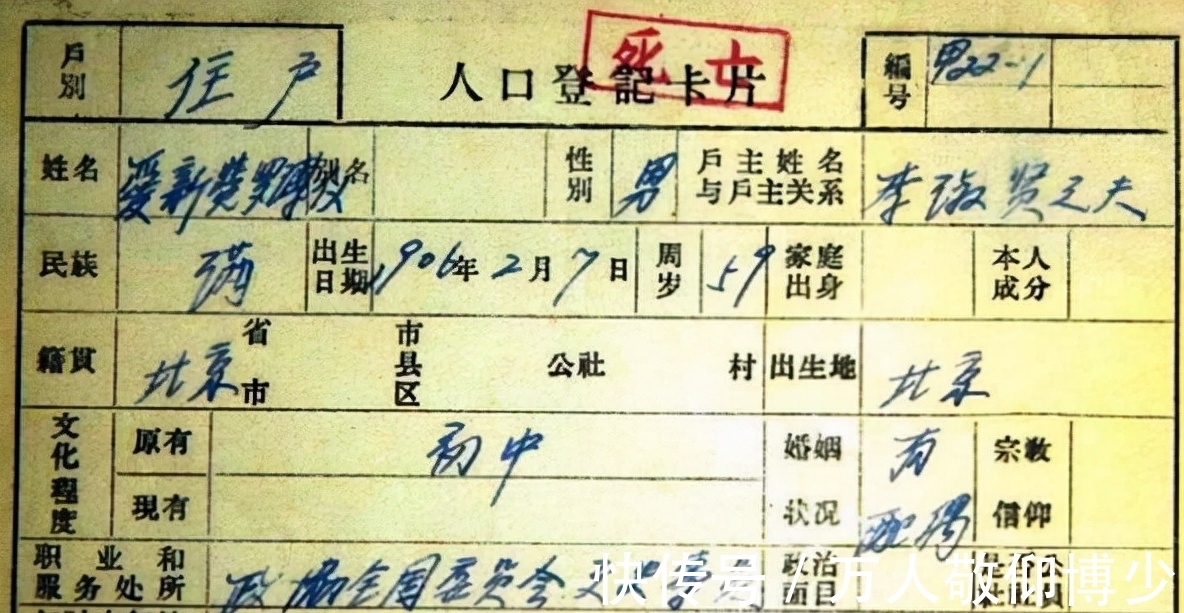 死亡
户别 住户 人口登記卡片 編号 男22-1
姓名 爱新觉罗溥仪 别名 性别 男 户主姓名与户主关系 李淑贤之夫
民族 满 出生日期 1906年2月7日 周岁 59 家庭出身 本人成分
籍贯 北京 省市 市县区 公社 村 出生地 北京
文化程度 原有 初中 婚姻状况 有配偶 宗教信仰
現有
职业和服务处所 政协全国委员会 政治面目
快传号 / 万人敬仰博少